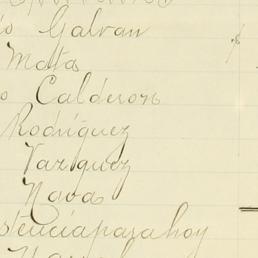 o Galvan
Mata
o Calderon
Rodríguez
Vazquez
Nava
stencia para hoy